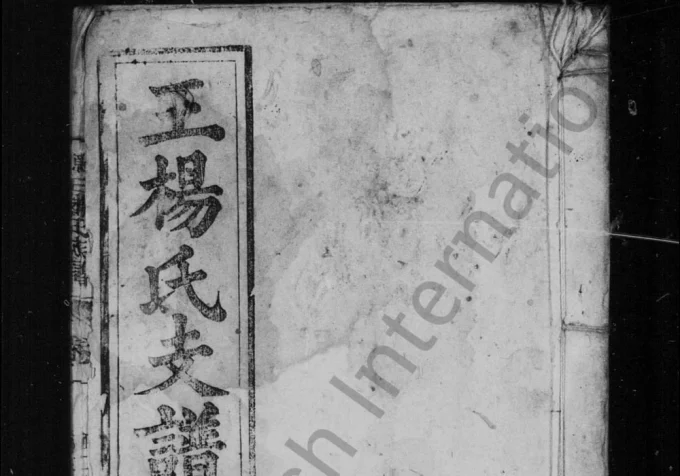 王楊氏支譜
ch Internatio